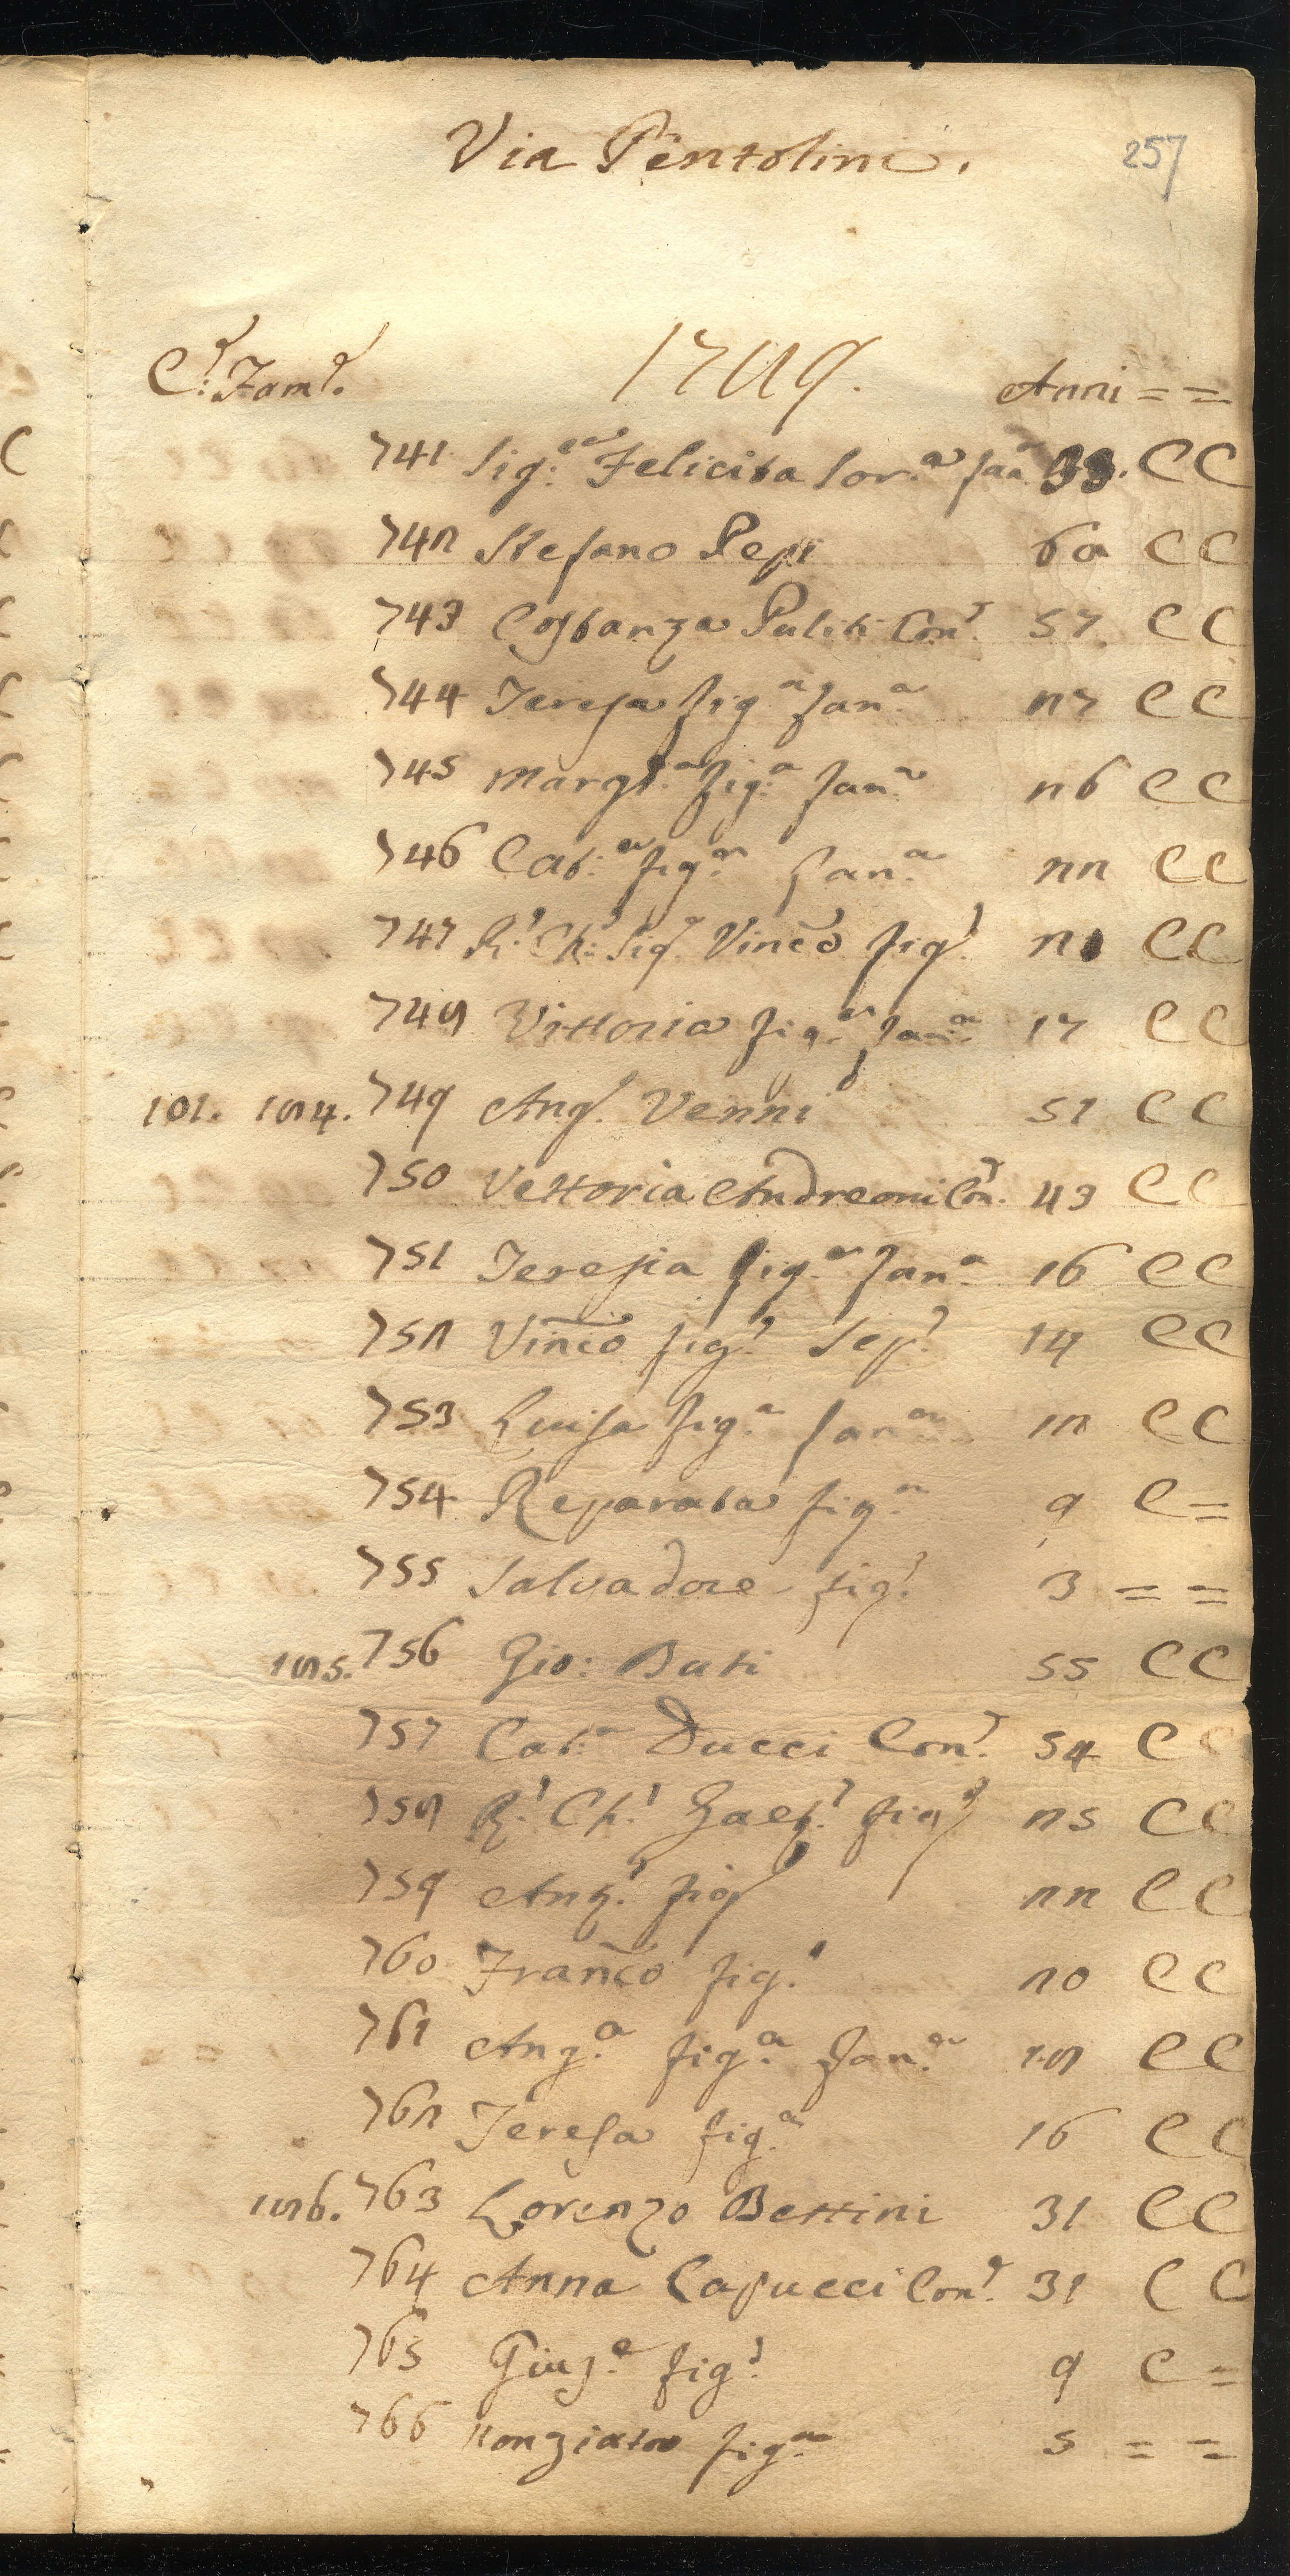 Via Pentolini.
257
C.e Fam.e 1749. Anni = =
741 Sig.ra Felicita Sor.a fan.a CC
742 Stefano Pepi 60 CC
743 Costanza Puliti Con.e 57 CC
744 Teresa fig.a fan.a 27 CC
745 Margt.a fig.a fan.a 26 CC
746 Cat.a fig.a fan.a 22 CC
747 R.o Ch.o Sig.r Vinc̃o fig.o 21 CC
748 Vittoria fig.a fan.a 17 CC
101. 184. 749 Ang.o Venni 51 CC
750 Vettoria Andreoni Con.e 43 CC
751 Teresia fig.a fan.a 16 CC
752 Vinc̃o fig.o Sep.o 14 CC
753 Luisa fig.a fan.a 12 CC
754 Reparata fig.a 9 C =
755 Salvadore fig.o 3 = =
185. 756 Gio: Buti 55 CC
757 Cat.a Ducci Con.e 54 CC
758 R.o Ch.o Gaet.o fig.o 25 CC
759 Ang.o fig.o 22 CC
760 Franc̃o fig.o 20 CC
761 Ang.a fig.a fan.a 18 CC
762 Teresa fig.a 16 CC
186. 763 Lorenzo Bettini 31 CC
764 Anna Capucci Con.e 31 CC
765 Giuz.e fig.o 9 C =
766 Nonziata fig.a 5 = =